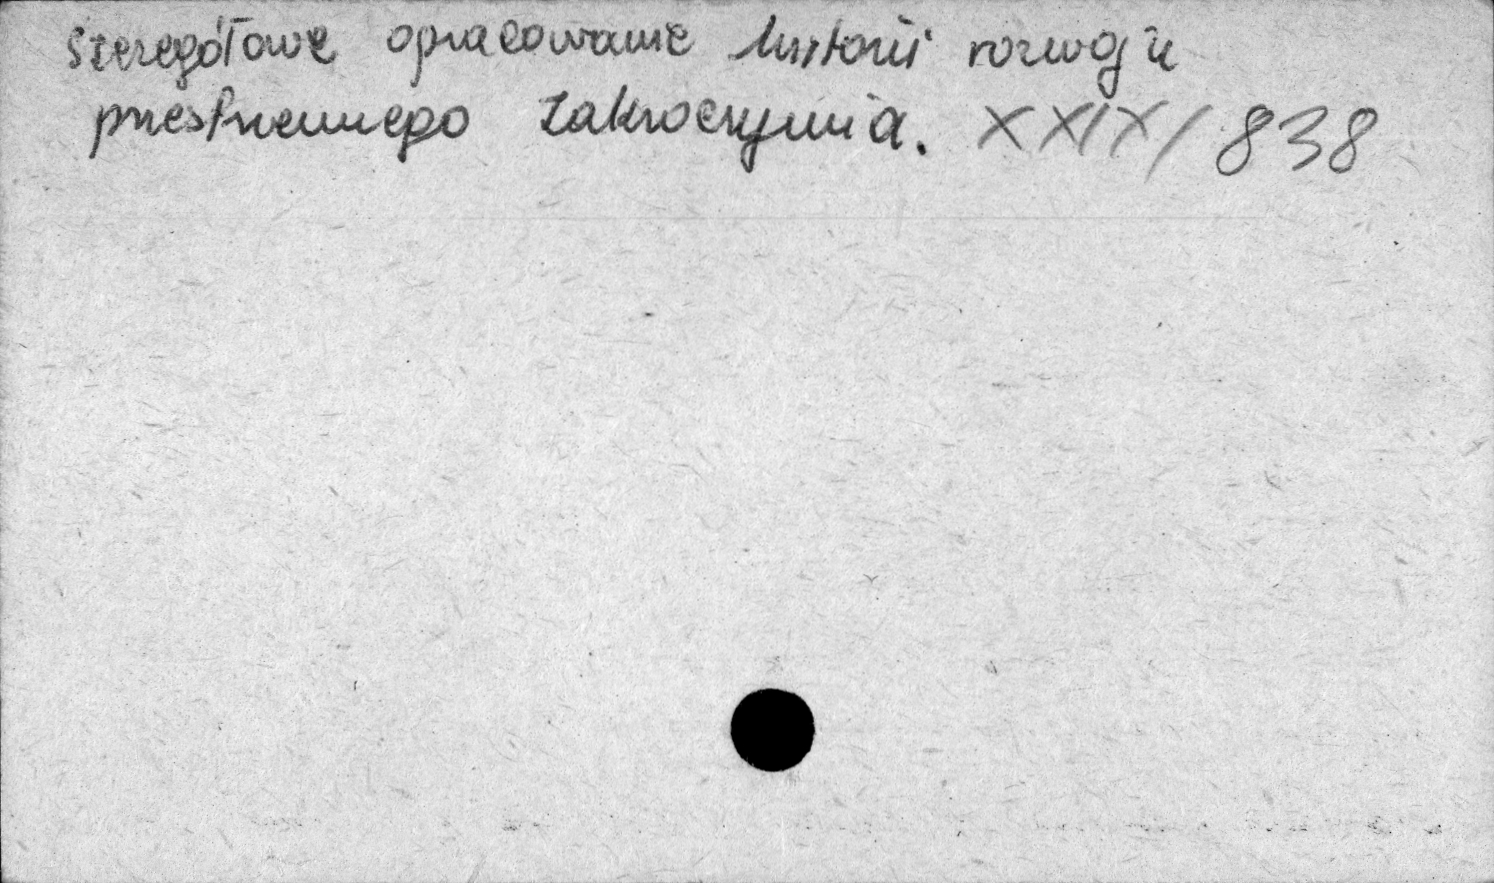 Szczegółowe opracowanie historii rozwoju
przestrzennego Zakroczymia. XXIX/838